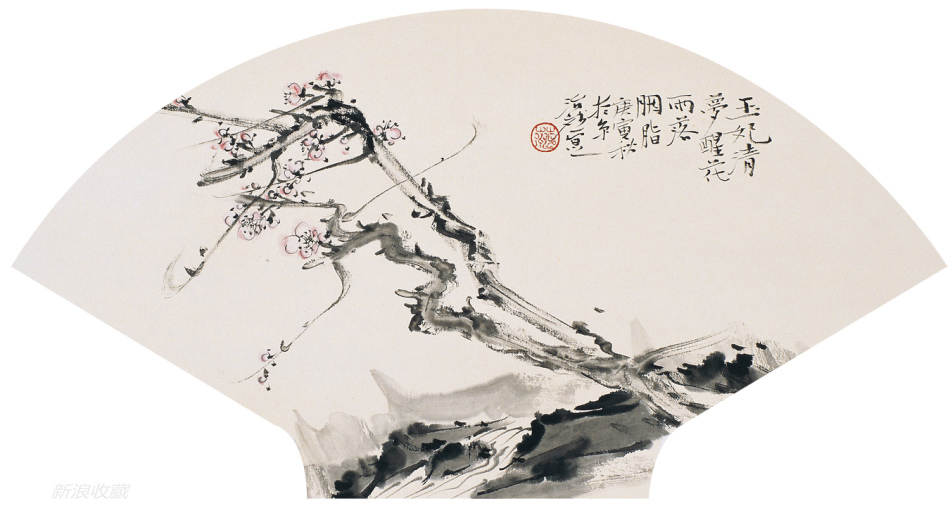 玉妃清
夢醒花
雨落
胭脂
庚寅秋
於京
新浪收藏